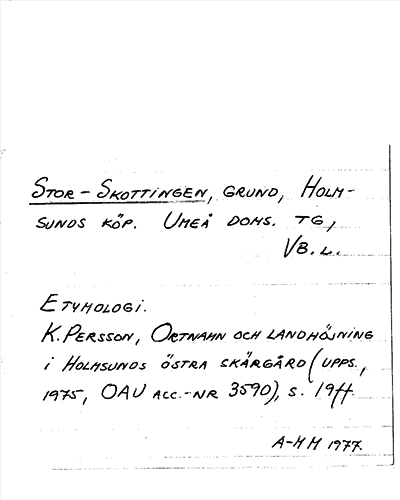 Stor-Skottingen, grund, Holm-
sunds köp. Umeå doms. tg,
Vb. l.
Etymologi.
K. Persson, Ortnamn och landhöjning
i Holmsunds östra skärgård (Upps.,
1975, OAU acc.-nr 3590), s. 19ff.
A-M M 1977.